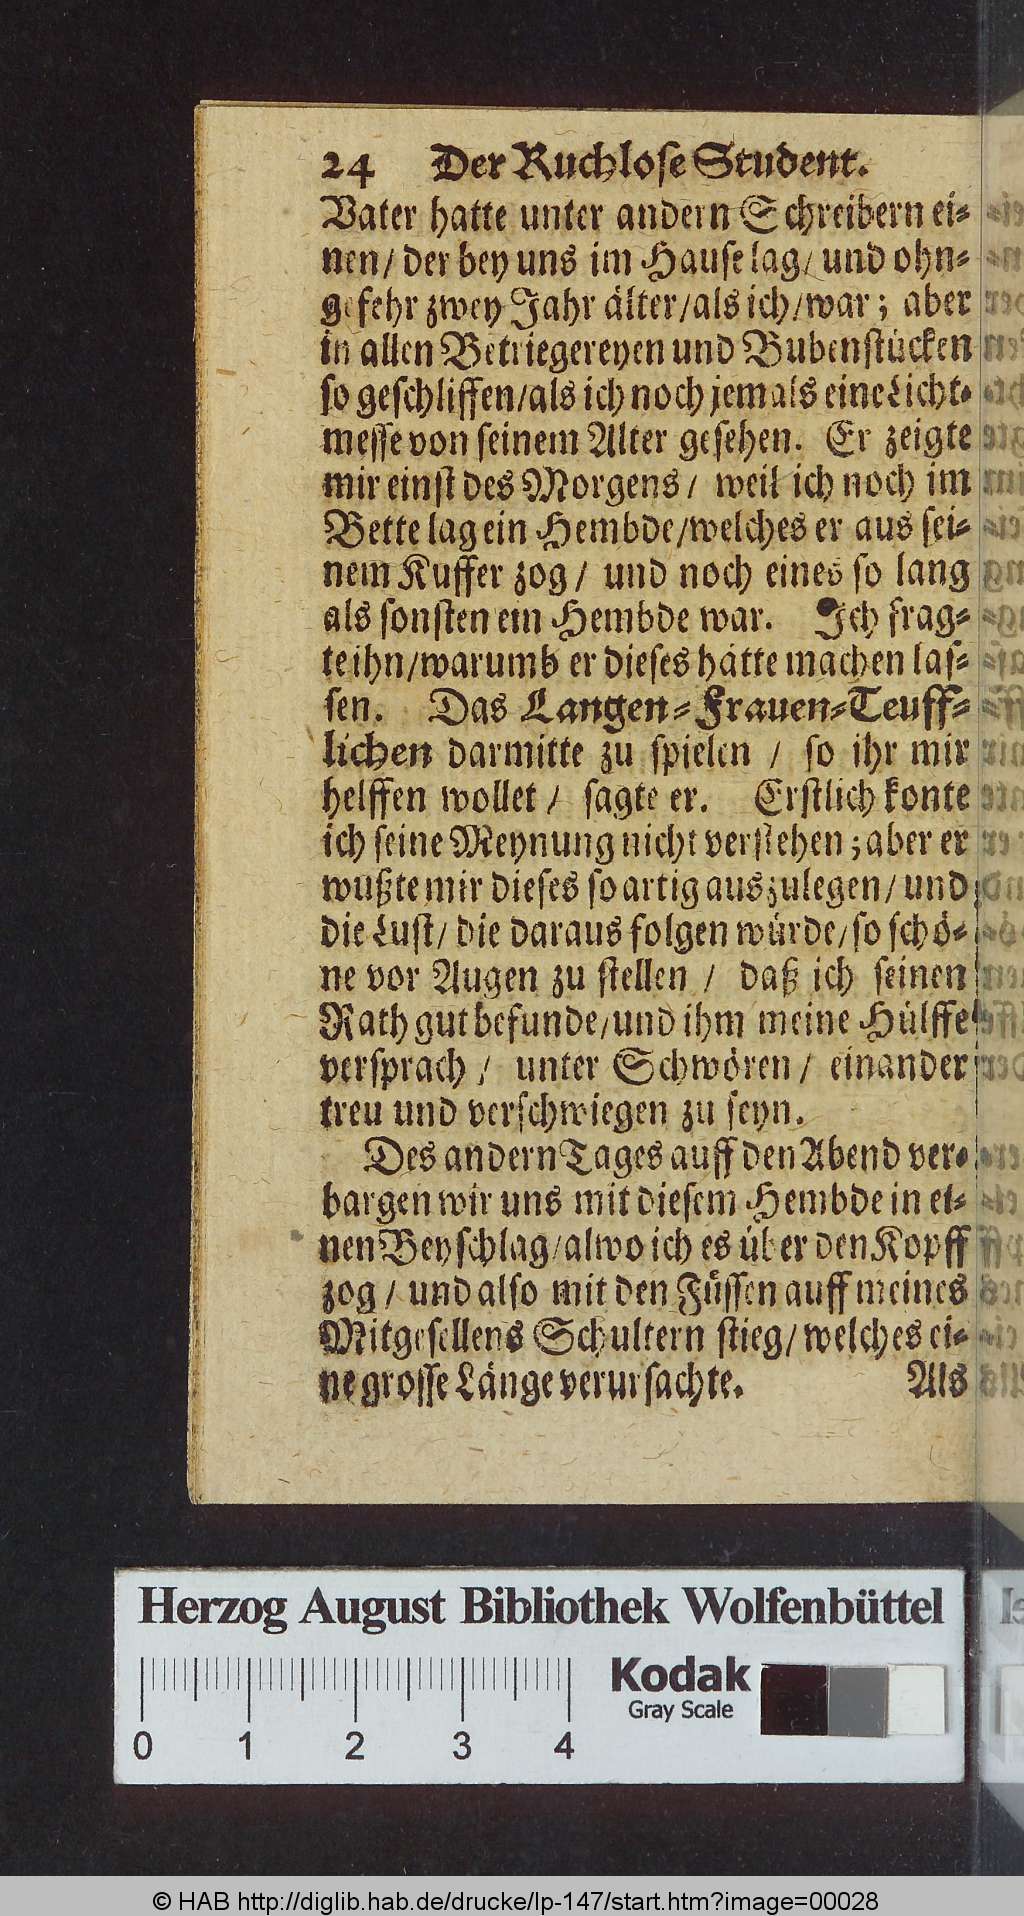 24 Der Ruchlose Student.
Vater hatte unter andern Schreibern ei-
nen / der bey uns im Hause lag / und ohn-
gefehr zwey Jahr älter / als ich / war ; aber
in allen Betriegereyen und Bubenstücken
so geschliffen / als ich noch jemals eine Licht-
messe von seinem Alter gesehen. Er zeigte
mir einst des Morgens / weil ich noch im
Bette lag ein Hembde / welches er aus sei-
nem Kuffer zog / und noch eines so lang
als sonsten ein Hembde war. Ich frag-
te ihn / warumb er dieses hätte machen las-
sen. Das Langen-Frauen-Teuff-
lichen darmitte zu spielen / so ihr mir
helffen wollet / sagte er. Erstlich konte
ich seine Meynung nicht verstehen ; aber er
wußte mir dieses so artig auszulegen / und
die Lust / die daraus folgen würde / so schö-
ne vor Augen zu stellen / daß ich seinen
Rath gut befunde / und ihm meine Hülffe
versprach / unter Schwören / einander
treu und verschwiegen zu seyn.
Des andern Tages auff den Abend ver-
bargen wir uns mit diesem Hembde in ei-
nen Beyschlag / alwo ich es über den Kopff
zog / und also mit den Füssen auff meines
Mitgesellens Schultern stieg / welches ei-
ne grosse Länge verursachte. Als
Herzog August Bibliothek Wolfenbüttel
Kodak
Gray Scale
0 1 2 3 4
© HAB http://diglib.hab.de/drucke/lp-147/start.htm?image=00028